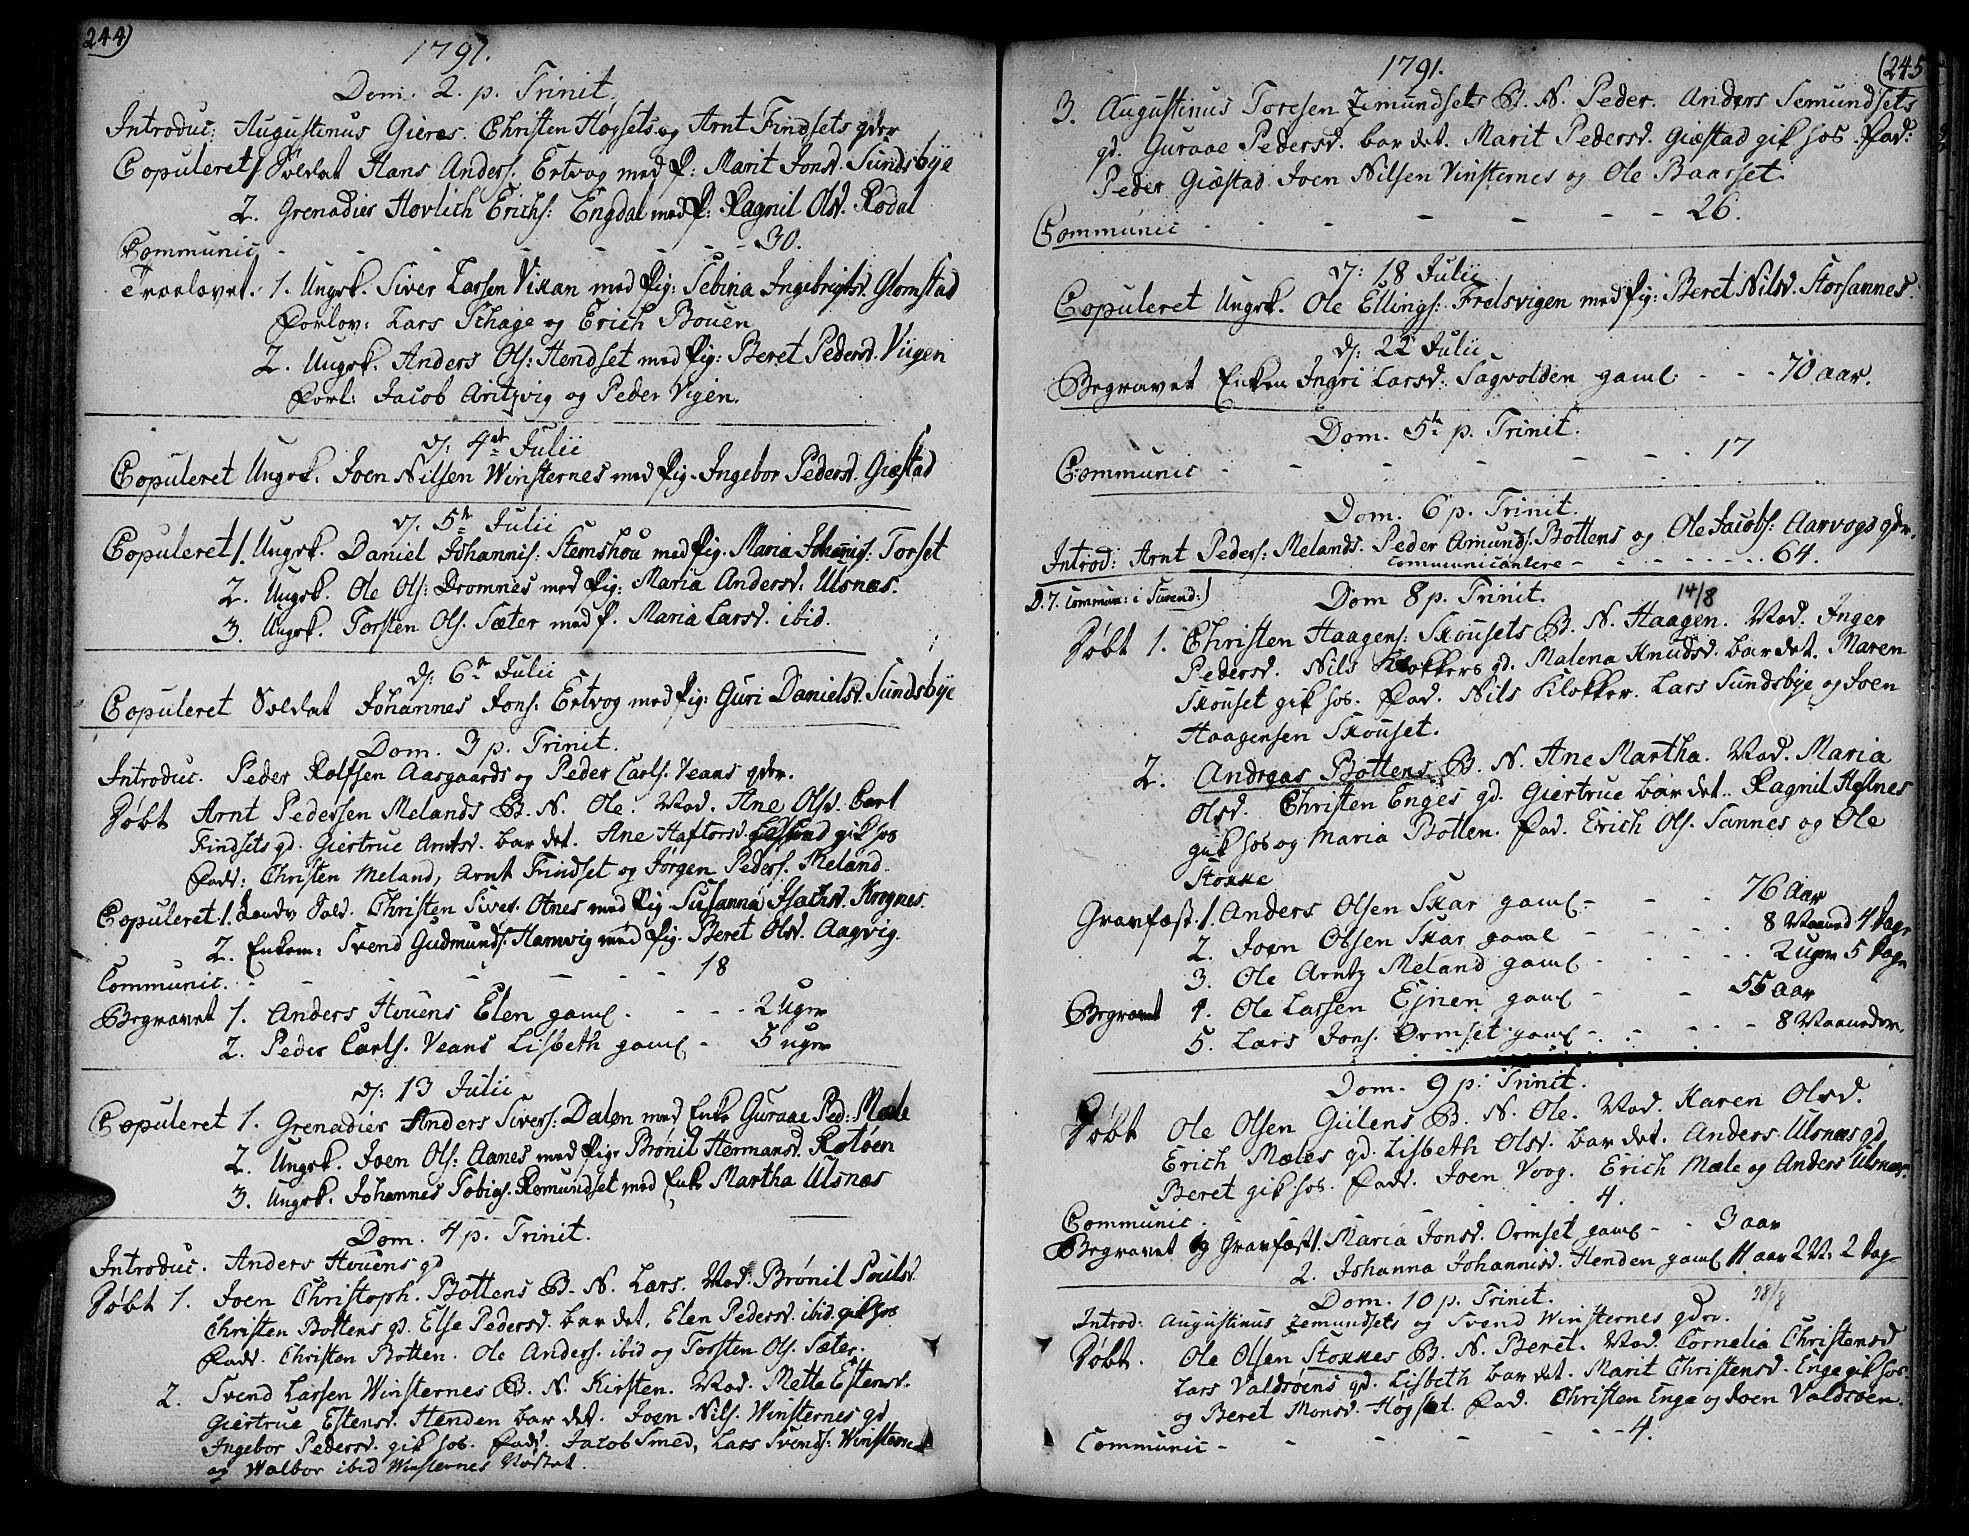 244)
1791.
Dom. 2. p. Trinit.
Introduc: Augustinus Gieras. Christen Høgsets og Arnt Findsets gdr
Copuleret 1 Soldat Hans Anders. Ertvog med P: Marit Jonsd. Sundsbye
2. Grenadier Hovlich Erichs: Engdal med P: Ragnil Olsd. Rodal
Communic - - - - - - 30.
Troelovet. 1. Ungk. Siver Larsen Vikan med Pig: Sebina Ingebrigtsd. Glomstad
Forlov: Lars Schage og Erich Bouen
2. Ungk. Anders Ols: Hendset med Pig: Beret Pedersd. Viigen
Forl: Jacob Aritzvig og Peder Vigen.
d: 4de Julii
Copuleret Ungk. Joen Nilsen Winsternes med Pig. Ingebor Pedersd. Giæstad
d. 5te Julii
Copuleret 1. Ungk. Daniel Johannis: Stemshou med Pig. Maria Johannis: Torset
2. Ungk. Ole Ols: Dromnes med Pig: Maria Andersd. Ulsnæs.
3. Ungk. Torsten Ols. Sæter med P. Maria Larsd. ibid.
d: 6te Julii
Copuleret Soldat Johannes Jons: Ertvog med Pig: Guri Danielsd. Sundsbye
Dom. 3 p. Trinit.
Introduc. Peder Rolfsen Aasgaards og Peder Carls. Veans gdr.
Døbt Arnt Pedersen Melands B. N. Ole. Mod. Ane Olsd. Carl
Findsets gd. Giertrue Arntsd. bar det. Ane Haftorsd. gik hos
Fadd: Christen Meland, Arnt Findset og Jørgen Peders. Meland.
Copuleret. 1. Landv Sold. Christen Sivers. Otnes med Pig Susanna Isachsd. Kongnes
2. Enkem: Svend Gudmunds. Hamvig med Pig. Beret Olsd. Aagvig.
Communic. - - - - - - 18
Begravet 1. Anders Houens Elen gaml. - - - 2 Uger
2. Peder Carls. Veans Lisbeth gaml - 5 uger
d: 13 Julii
Copuleret 1. Grenadier Anders Sivers: Daløn med Enke Guraae Ped: Mæle
2. Ungk. Joen Ols: Aanes med Pig: Brønil Hermansd. Rotøen
3. Ungk. Johannes Tobias. Romundset med Enke Martha Ulsnæs
Dom. 4 p. Trinit.
Introduc. Anders Houens gd
Døbt 1. Joen Christoph. Bottens B. N. Lars. Mod. Brønil Poulsd.
Christen Bottens gd. Else Pedersd. bar det. Elen Pedersd. ibid. gik hos
Fadd. Christen Botten. Ole Anders. ibid og Torsten Ols. Sæter.
2. Svend Larsen Winsternes B. N. Kirsten. Mod. Mette Estensd.
Giertrue Estensd. Henden bar det. Joen Nils. Winsternes gd
Ingebor Pedersd. gik hos. Fadd. Jacob Smed, Lars Svends. Winsternes
og Walbor ibid Winsternes
(245
1791.
3. Augustinus Toresen Zemundsets B. N. Peder. Anders Semundsets
gd. Guraae Pedersd. bar det. Marit Pedersd. Giæstad gik hos. Fad:
Peder Giæstad Joen Nilsen Vinsternes og Ole Baarset.
Communic - - - - - - 26.
d: 18 Julii
Copuleret Ungk. Ole Ellings: Frelsvigen med Pig: Beret Nilsd. Storsannes.
d: 22 Julii
Begravet Enken Ingri Larsd. Sagvolden gaml: - - - 70 aar.
Dom. 5te p. Trinit.
Communic - - - - - - 17
Dom. 6 p. Trinit.
Introd: Arnt Peders: Melands. Peder Amunds. Bottens og Ole Jacobs: Aarvogs gdr.
Communicantere - - - - - - 64.
D. 7. Commun: i Surend:) Dom 8 p. Trinit. 14/8
Døbt 1. Christen Haagens: Skousets B. N. Haagen. Mod. Inger
Pedersd. Nils Klokkers gd. Malena Knudsd. bar det. Maren
Skouset gik hos. Fad. Nils Klokker. Lars Sundsbye og Joen
Haagensen Skouset.
2. Andreas Bottens B. N. Ane Martha. Mod. Maria
Olsd. Christen Enges gd. Giertrue bar det. Ragnil Helnes
gik hos og Maria Botten. Fad. Erich Ols. Sannes og Ole
Stokke
Gravfæst. 1. Anders Olsen Skar gaml - - - 76 Aar
2. Joen Olsen Skar gaml - - - 8 Maaned 4 Dage
3. Ole Arntz Meland gaml - - - 2 uger 5 Dage
Begravet 4. Ole Larsen Ejnen gaml - - 55 aar
5. Lars Jons. Ormset gaml - - - 8 Maaneder.
Dom. 9 p. Trinit.
Døbt Ole Olsen Gulens B. N. Ole. Mod. Karen Olsd.
Erich Mæles gd. Lisbeth Olsd. bar det. Anders Ulsnæs gd
Beret gik hos. Fadd. Joen Voog. Erich Mæle og Anders Ulsnæs.
Communic. - - - - - 4.
Begravet og Gravfæst 1. Maria Jonsd. Ormset gaml - - 3 aar
2. Johanna Johannisd. Henden gaml 11 aar 2 M. 2 Dage
Dom. 10 p. Trinit. 28/8
Introd: Augustinus Zemundsets og Svend Winsternes gdr.
Døbt. Ole Olsen Stokkes B. N. Beret. Mod. Cornelia Christensd
Lars Valdsøens gd. Lisbeth bar det. Marit Christensd. Enge gik hos.
og Beret Monsd. Høgset. Fad. Christen Enge og Joen Valdsøen.
Communic - - - - - - 4.